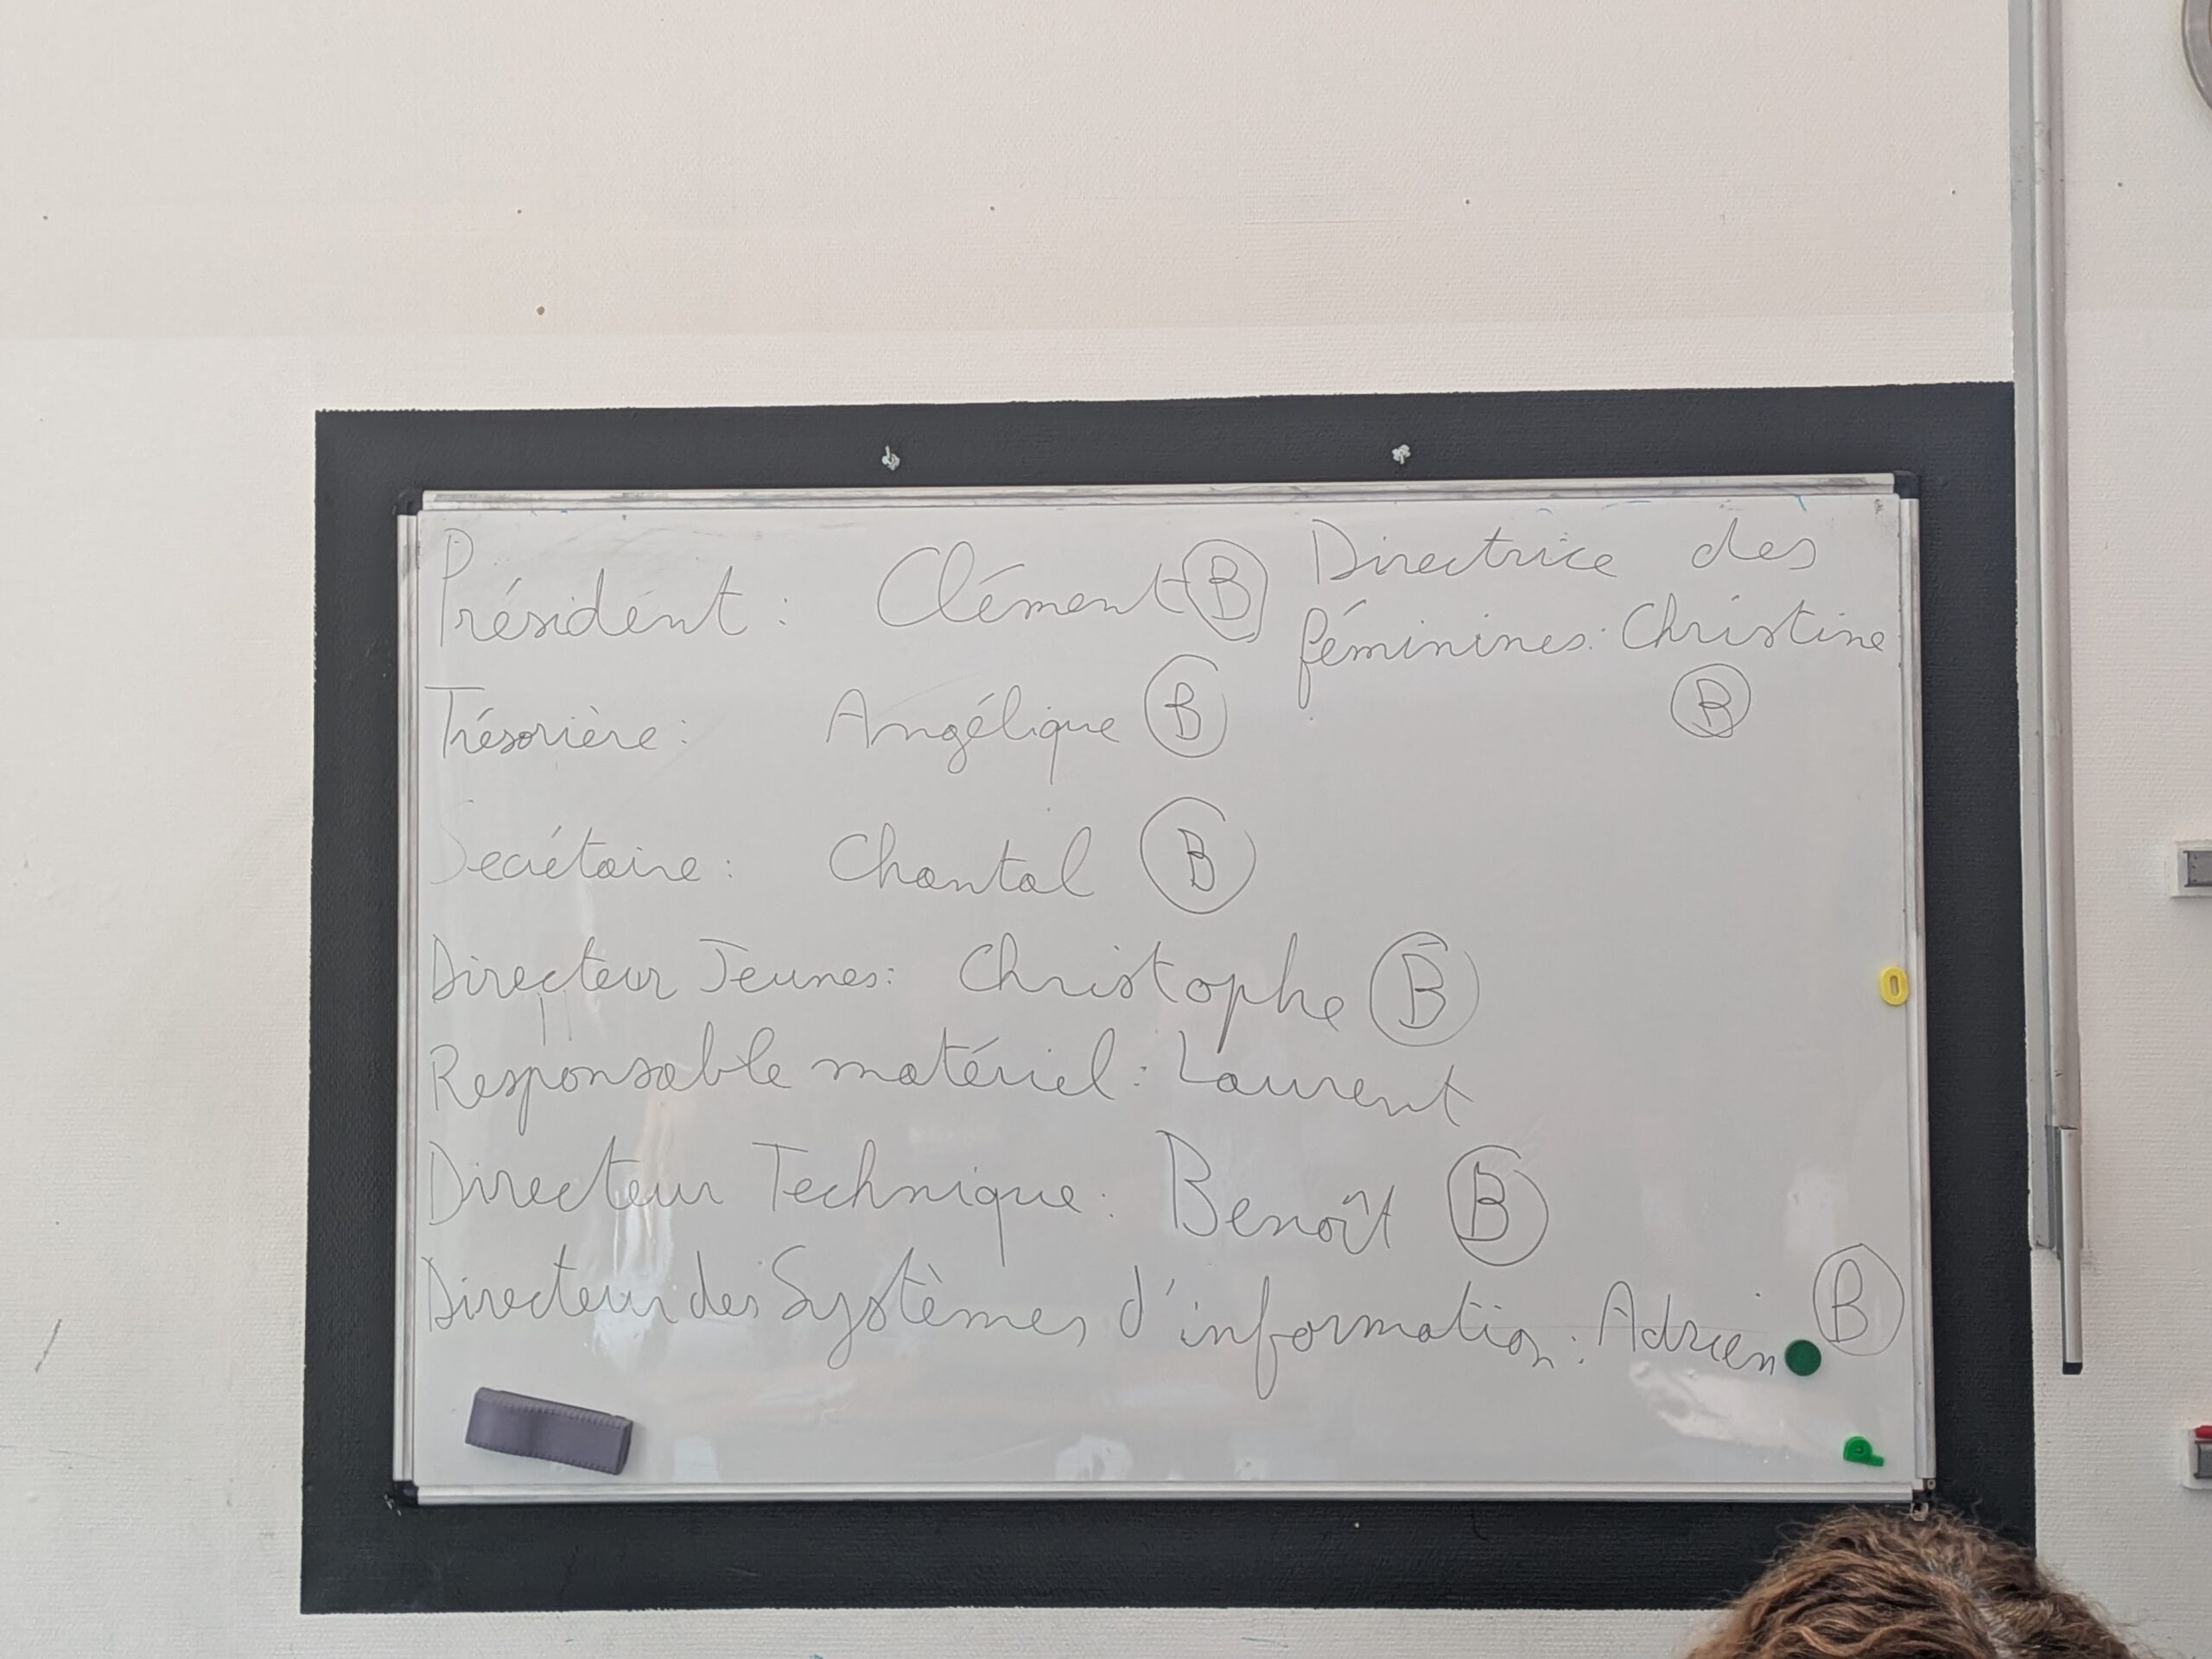 Président : Clément B
Trésorière : Angélique B
Secrétaire : Chantal B
Directeur Jeunes : Christophe B
Responsable matériel : Laurent
Directeur Technique : Benoît B
Directeur des Systèmes d'information : Adrien B
Directrice des
féminines : Christine
B